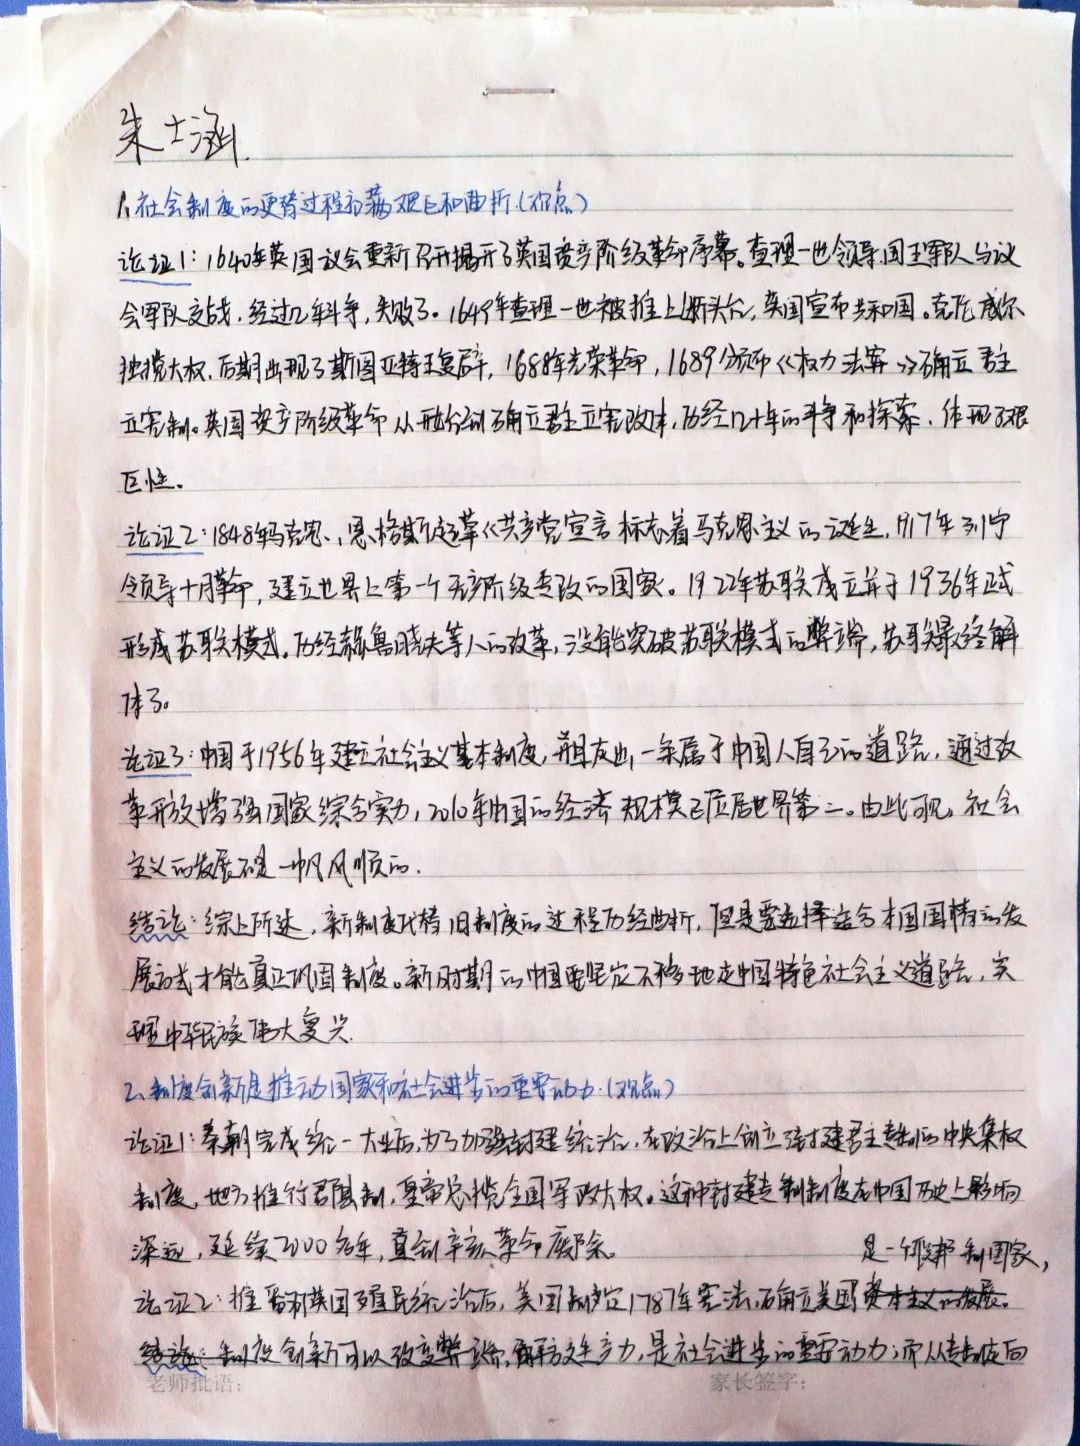 朱士涵
1、社会制度的更替过程充满艰巨和曲折（观点）
论证1：1640年英国议会重新召开揭开了英国资产阶级革命序幕。查理一世领导国王军队与议
会军队交战，经过几年斗争，失败了。1649年查理一世被推上断头台，英国宣布共和国。克伦威尔
独揽大权，后期出现了斯图亚特王复辟，1688年光荣革命，1689颁布《权力法案》确立君主
立宪制。英国资产阶级革命从开始到确立君主立宪政体，历经几十年的斗争和探索，体现了艰
巨性。
论证2：1848年马克思、恩格斯起草《共产党宣言标志着马克思主义的诞生，1917年列宁
领导十月革命，建立世界上第一个无产阶级专政的国家。1922年苏联成立并于1936年正式
形成苏联模式。历经赫鲁晓夫等人的改革，没能突破苏联模式的弊端，苏联最终解
体了。
论证3：中国于1956年建立社会主义基本制度，并且走出一条属于中国人自己的道路，通过改
革开放增强国家综合实力，2010年中国的经济规模已位居世界第二。由此可见，社会
主义的发展不是一帆风顺的.
结论：综上所述，新制度代替旧制度的过程历经曲折，但是要选择适合本国国情的发
展方式才能真正巩固制度。新时期的中国要坚定不移地走中国特色社会主义道路，实
现中华民族伟大复兴.
2、制度创新是推动国家和社会进步的重要动力.（观点）
论证1：秦朝完成统一大业后，为了加强封建统治，在政治上创立封建君主专制的中央集权
制度，地方推行郡县制，皇帝总揽全国军政大权。这种封建专制制度在中国历史上影响
深远，延续2000多年，直到辛亥革命废除。
是一个联邦制国家，
论证2：推翻英国殖民统治后，美国制定1787年宪法，确立美国资本主义的发展。
结论：制度创新可以改变弊端，解放生产力，是社会进步的重要动力；而从专制走向
老师批语：
家长签字：